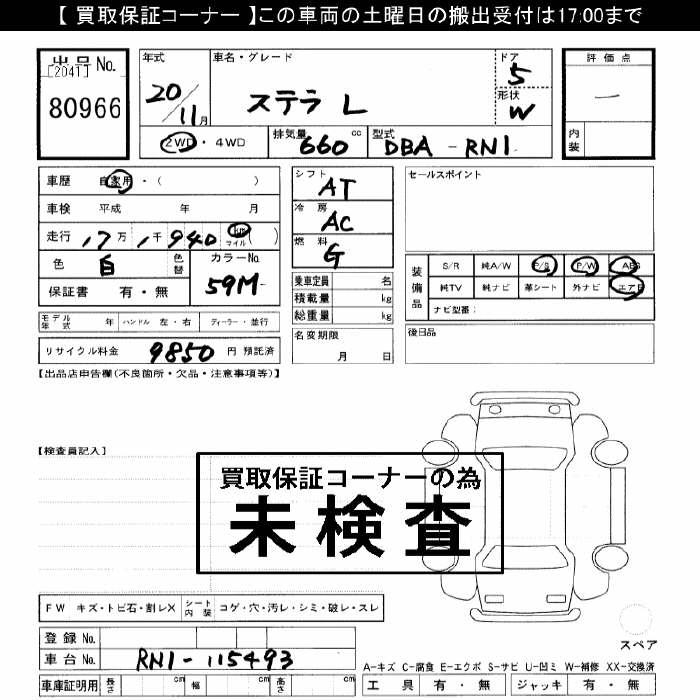 【 買取保証コーナー 】この車両の土曜日の搬出受付は17:00まで
出品No.
[2041]
80966
年式
20/11月
車名・グレード
ステラ L
ドア
5
形状
W
2WD・4WD
排気量 660 cc
型式 DBA-RN1
評価点
一
内装
車歴 自家用・( )
車検 平成 年 月
走行 17万1千940 km マイル( )
色 白 色替
カラーNo. 59M
保証書 有・無
モデル年式 年 ハンドル 左・右 ディーラー・並行
リサイクル料金 9850 円 預託済
シフト AT
冷房 AC
燃料 G
乗車定員 名
積載量 kg
総重量 kg
名変期限
月 日
セールスポイント
装備品
S/R 純A/W P/S P/W ABS
純TV 純ナビ 革シート 外ナビ エアB
ナビ型番:
後日品
【出品店申告欄(不良箇所・欠品・注意事項等)】
【検査員記入】
買取保証コーナーの為
未検査
FW キズ・トビ石・割レX シート内装 コゲ・穴・汚レ・シミ・破レ・スレ
登録 No.
車台 No. RN1-115493
車庫証明用 長さ cm 幅 cm 高さ cm
スペア
A-キズ C-腐食 E-エクボ S-サビ U-凹ミ W-補修 XX-交換済
工具 有・無 ジャッキ 有・無